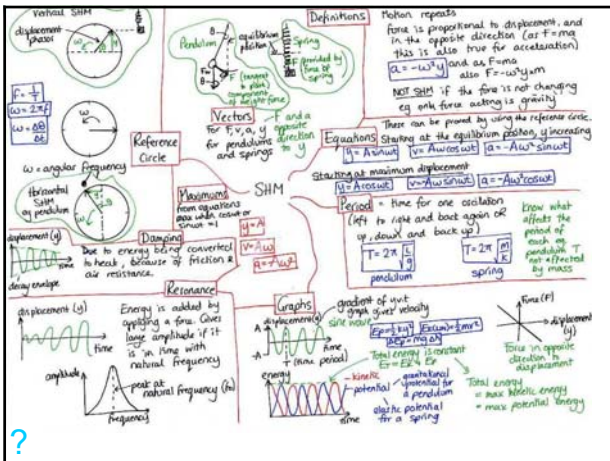 Vertical SHM
displacement
phasor
f = 1/T
ω = 2πf
ω = Δθ/Δt
ω
ω = angular frequency
Horizontal
SHM
of pendulum
Reference
Circle
Pendulum
equilibrium
position
Spring
F (tangent
to path)
component of
weight force
F
provided by
force of
spring
Vectors
For F, v, a, y
for pendulums
and springs
F and a
opposite
direction
to y
Definitions
Motion repeats
Force is proportional to displacement, and
in the opposite direction (as F=ma
this is also true for acceleration)
a = -ω²y and as F=ma
also F=-ω²y×m
NOT SHM if the force is not changing
eg only force acting is gravity
Equations
These can be proved by using the reference circle.
Starting at the equilibrium position, y increasing
y = Asinωt v = Aωcosωt a = -Aω²sinωt
Starting at maximum displacement
y = Acosωt v = -Aωsinωt a = -Aω²cosωt
SHM
Maximums
from equations
max when cosωt or
sinωt = 1
y = A
v = Aω
a = -Aω²
Period = time for one oscillation
(left to right and back again or
up, down and back up)
T = 2π √l/g
pendulum
T = 2π √m/k
spring
Know what
affects the
period of
each eg
pendulum T
not affected
by mass
Damping
displacement (y)
time
decay envelope
Due to energy being converted
to heat, because of friction &
air resistance.
Resonance
displacement (y)
time
Energy is added by
applying a force. Gives
large amplitude if it
is in time with
natural frequency
amplitude
peak at
natural frequency (f₀)
frequency
Graphs
gradient of y v t
graph gives velocity
displacement (y)
sine wave
A
-A
time
T (time period)
Ep = ½ky² Ek(lin) = ½mv²
ΔEp = mgΔh
Total energy is constant
ET = Ek + Ep
energy
kinetic
potential
gravitational
potential for
a pendulum
elastic potential
for a spring
time
Total energy
= max kinetic energy
= max potential energy
Force (F)
displacement
(y)
Force in opposite
direction to
displacement
?